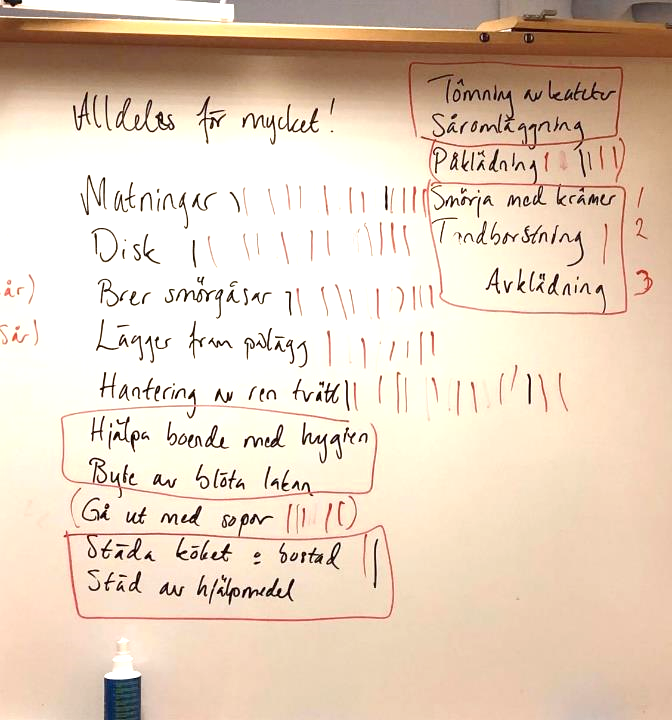 Alldeles för mycket!
Matningar
Disk
Brer smörgåsar
Lägger fram pålägg
Hantering av ren tvätt
Hjälpa boende med hygien
Byte av blöta lakan
(Gå ut med sopor)
Städa köket o bostad
Städ av hjälpmedel
Tömning av kateter
Såromläggning
(Påklädning)
Smörja med krämer 1
Tandborstning 2
Avklädning 3
år)
sår)